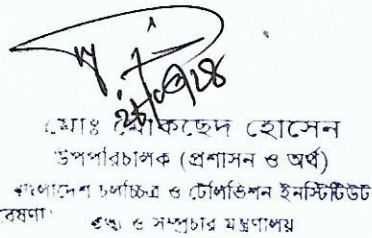 মোঃ মোকছেদ হোসেন
উপপরিচালক (প্রশাসন ও অর্থ)
বাংলাদেশ চলচ্চিত্র ও টেলিভিশন ইনস্টিটিউট
তথ্য ও সম্প্রচার মন্ত্রণালয়